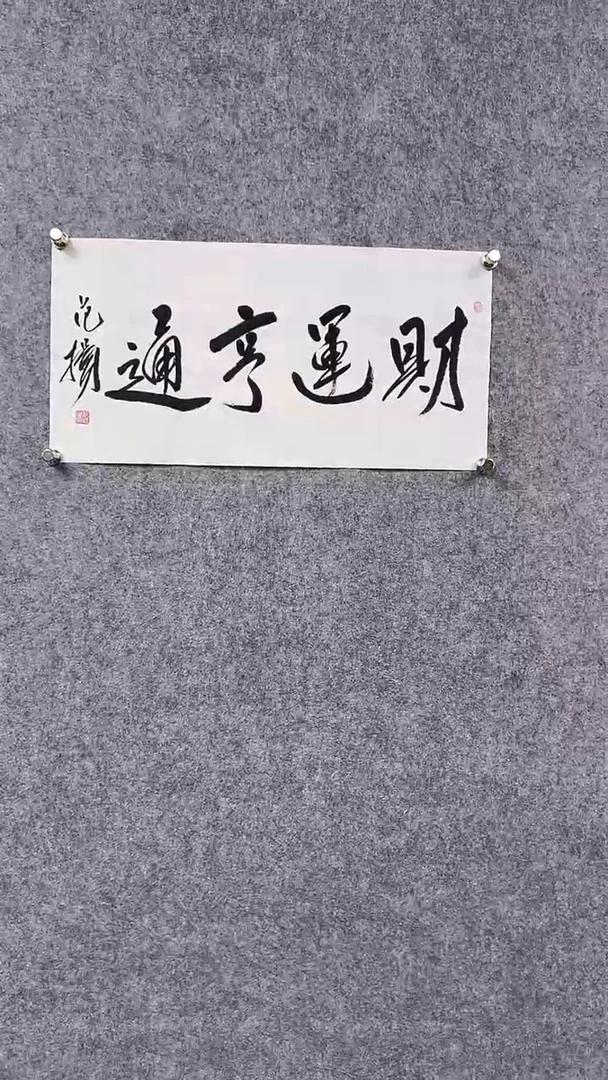 財運亨通
范揚